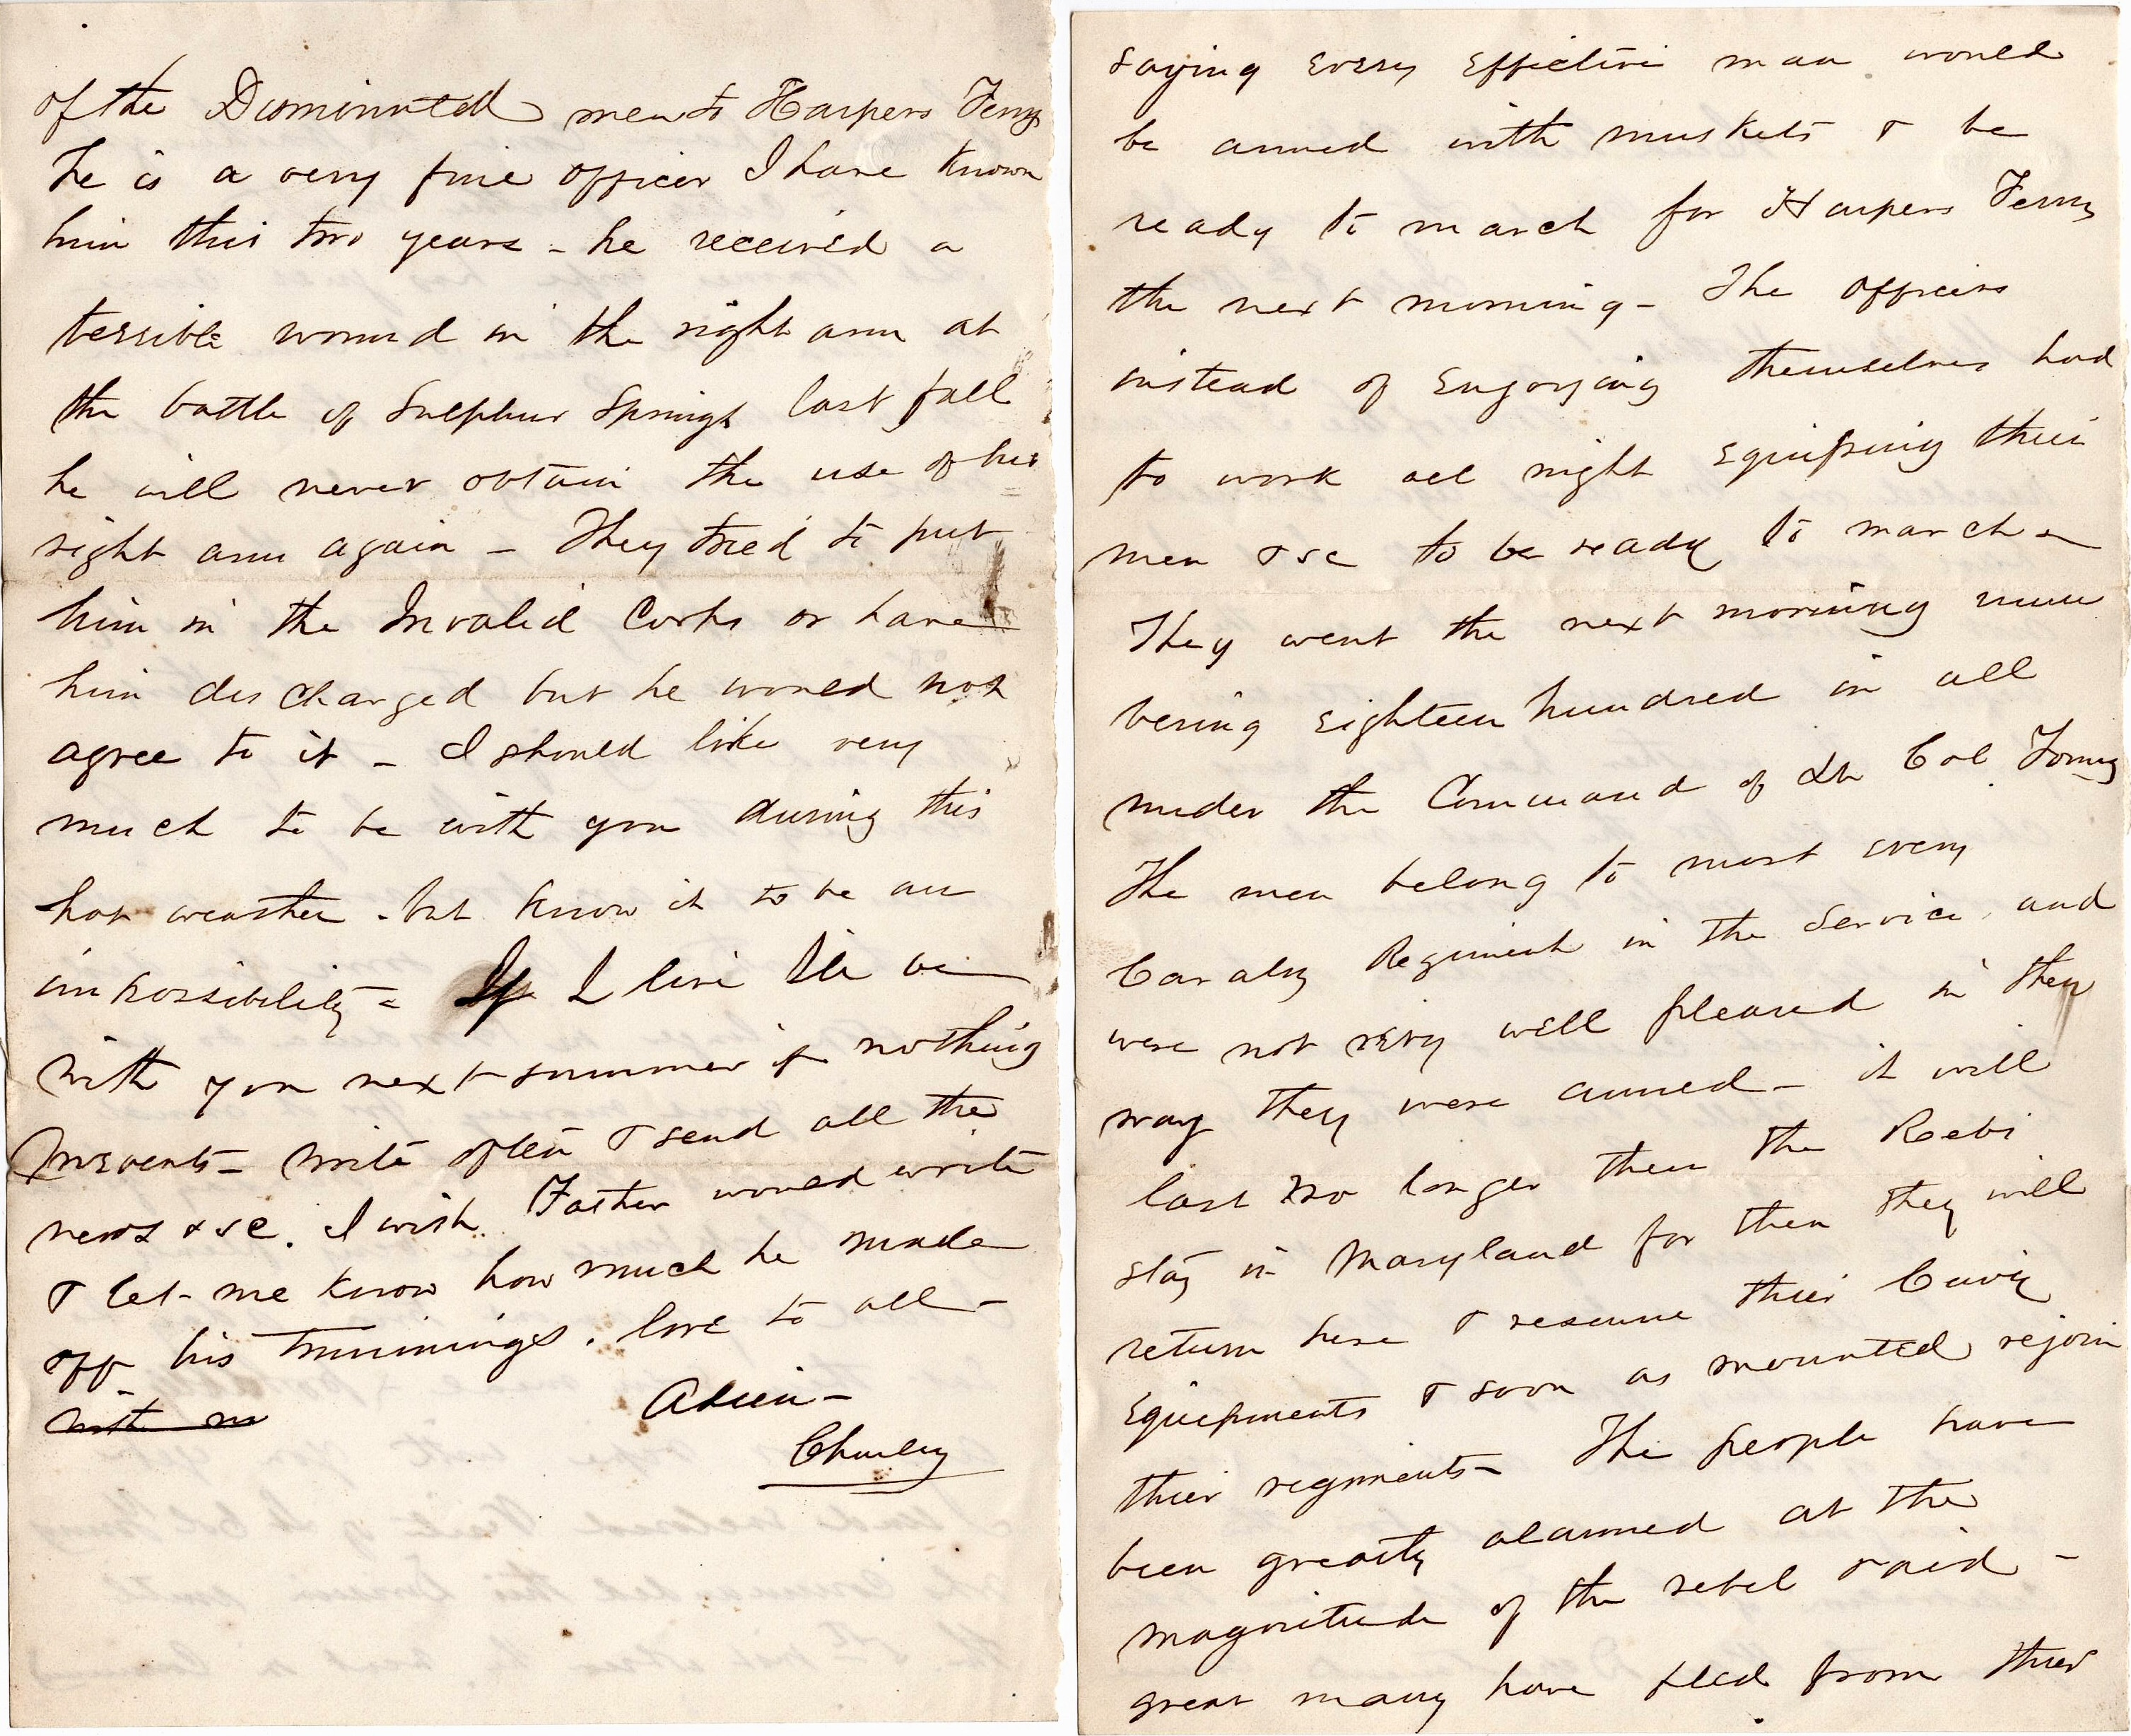 of the Dismounted men to Harpers Ferry
he is a very fine officer I have known
him this two years - he received a
terrible wound in the right arm at
the battle of Sulphur Springs last fall
he will never obtain the use of his
right arm again - They tried to put
him in the Invalid Corps or have
him discharged but he would not
agree to it - I should like very
much to be with you during this
hot weather - but know it to be an
impossibility - If I live Ile be
with you next summer if nothing
prevents - write often & send all the
news &sc. I wish Father would write
& let me know how much he made
off his trimmings. love to all -
Adieu -
Charley
saying every effective man would
be armed with muskets & be
ready to march for Harpers Ferry
the next morning - The officers
instead of engoying themselves had
to work all night equipping thier
men &sc to be ready to march -
They went the next morning num
bering eighteen hundred in all
under the Command of Lt Col
The men belong to most every
Cavalry Regiment in the Service and
were not very well pleased in the
way they were armed - it will
last no longer then the Rebs
stay in Maryland for then they will
return here & resume thier Cavy
Equipments & soon as mounted rejoin
thier regiments - The people have
been greatly alarmed at the
magnitude of the rebel raid -
great many have fled from thier